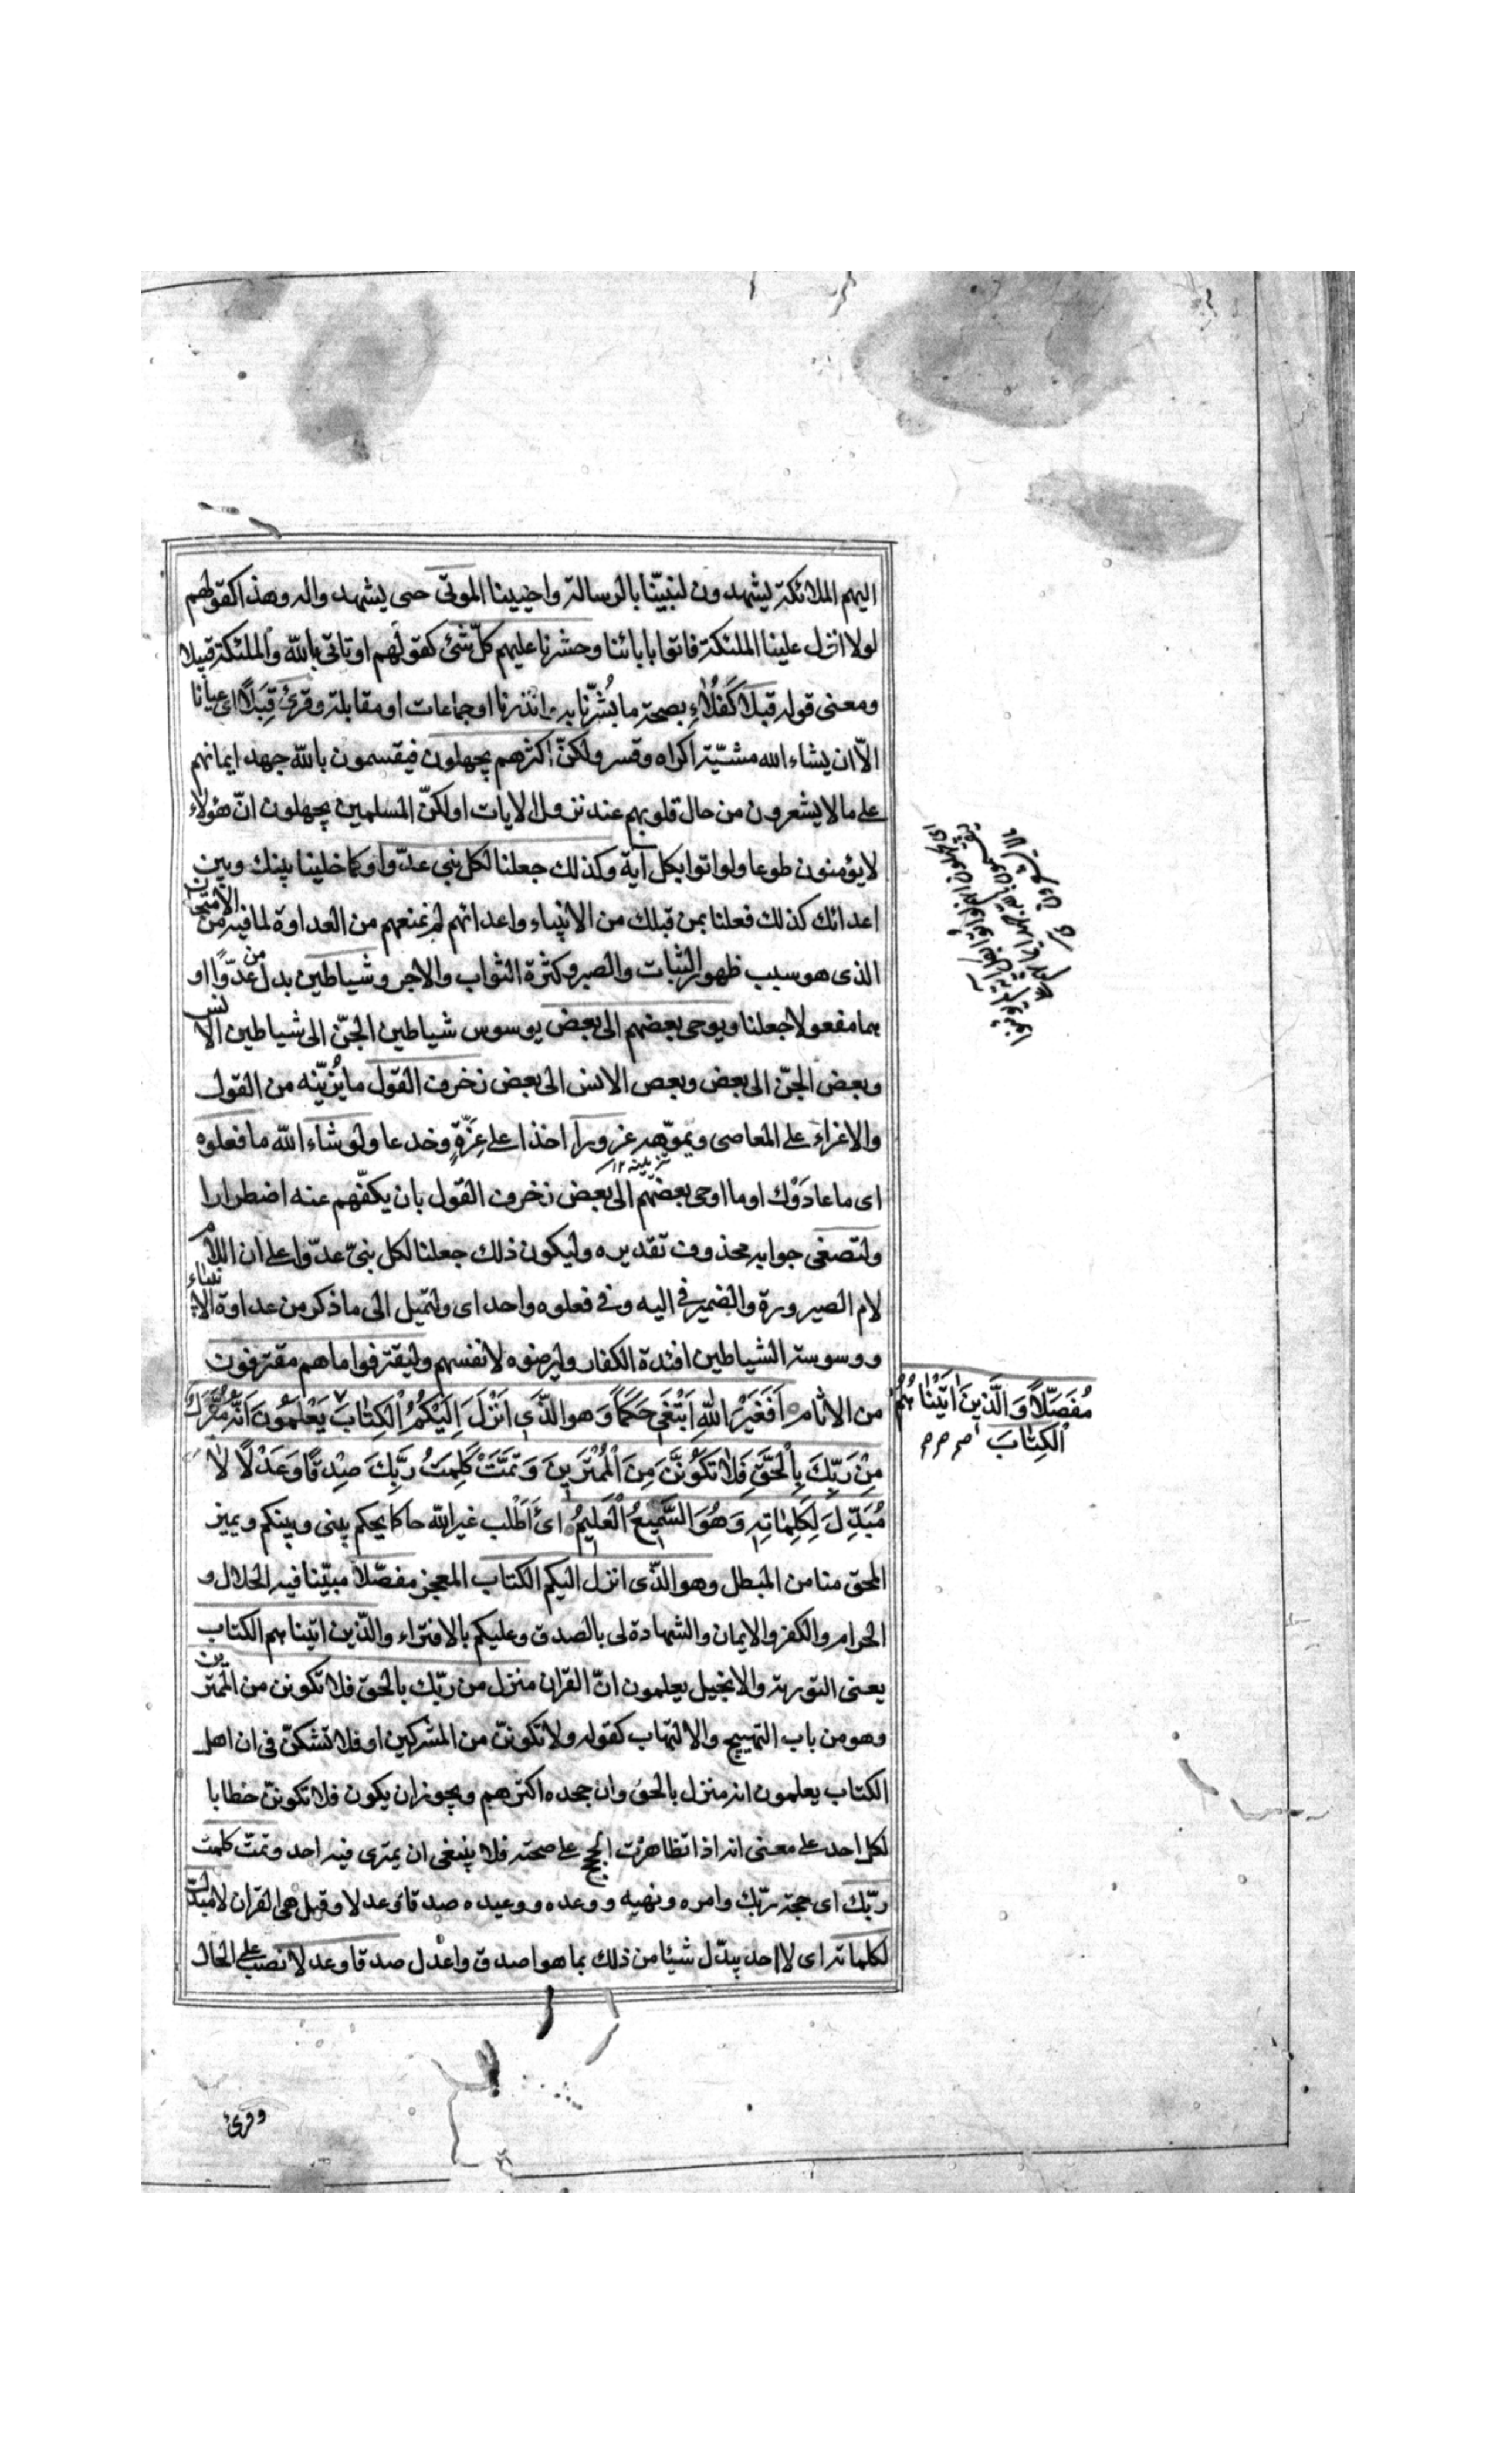 اليهم الملائكة يشهدون لنبيّنا بالرسالة واحيينا الموتى حتى يشهد واله وهذا كقولهم
لولا انزل علينا الملئكة فاتوا بابائنا وحشرنا عليهم كلّ شئ كقولهم او تاتى بالله والملئكة قبيلا
ومعنى قوله قبلا كفلاء بصحة ما بُشّرنا به وانذرنا او جماعات او مقابلة وقرئ قِبَلًا اى عيانا
الاّ ان يشاء الله مشيّة اكراه وقسر ولكنّ اكثرهم يجهلون فيقسمون بالله جهد ايمانهم
على ما لا يشعرون من حال قلوبهم عند نزول الايات او لكنّ المسلمين يجهلون انّ هؤلاء
لا يؤمنون طوعا ولو اتوا بكل آية وكذلك جعلنا لكل نبى عدّوا وكما خلينا بينك وبين
اعدائك كذلك فعلنا بمن قبلك من الانبياء واعدائهم لم نمنعهم من العداوة لما فيه من الامتحان
الذى هو سبب ظهور الثبات والصبر وكثرة الثواب والاجر وشياطين بدل من عدّوًا او
هما مفعولا جعلنا ويوحى بعضهم الى بعض يوسوس شياطين الجنّ الى شياطين الانس
وبعض الجنّ الى بعض وبعض الانس الى بعض زخرف القول ما يُزيّنه من القول
والاغراء على المعاصى ويموّهه غرورا اخذا على غِرّةٍ وخدعا ولو شاء الله ما فعلوه
اى ما عادَوْك او ما اوحى بعضهم الى بعض زخرف القول بان يكفّهم عنه اضطرارا
ولتصغى جوابه محذوف تقديره وليكون ذلك جعلنا لكل نبىّ عدّوا على ان اللام
لام الصيرورة والضمير فى اليه وفى فعلوه واحد اى ولتميل الى ما ذكر من عداوة الانبياء
ووسوسة الشياطين افئدة الكفار وليرضوه لانفسهم وليقترفوا ما هم مقترفون
من الاثام اَفَغَيْرَ اللهِ اَبْتَغى حَكَمًا وَهو الذَّى اَنْزَلَ اِلَيْكُمُ الْكِتابَ يَعْلَمُونَ اَنَّهُ مُنَزَّلٌ
مُفَصَّلًا وَالَّذينَ اتَيْناهُمُ
الْكِتابَ
مِنْ رَبِّكَ بِالْحَقِّ فَلا تَكُونَنَّ مِنَ الْمُمْتَرينَ وَتَمَّتْ كَلِمَتُ رَبِّكَ صِدْقًا وَعَدْلًا لا
مُبَدِّلَ لِكَلِماتِهِ وَهُوَ السَّميعُ الْعَليمُ اى أَاَطْلب غير الله حاكما يحكم بينى وبينكم ويميز
المحق منا من المبطل وهو الذّى انزل اليكم الكتاب المعجز مفصّلا مبيّنا فيه الحلال و
الحرام والكفر والايمان والشهادة لى بالصدق وعليكم بالافتراء والذّين اتيناهم الكتاب
يعنى التورية والانجيل يعلمون انّ القران منزل من ربّك بالحق فلا تكونن من الممترين
وهو من باب التهييج والالتهاب كقوله ولا تكوننّ من المشركين او فلا تشكنّ فى ان اهل
الكتاب يعلمون انه منزل بالحق وان جحده اكثرهم ويجوز ان يكون فلا تكوننّ خطابا
لكل احد على معنى انه اذا تظاهرت الحجج على صحته فلا ينبغى ان يمترى فيه احد وتمت كلمت
ربّك اى حجة ربّك وامره ونهيه ووعده ووعيده صدقا وعدلا وقيل هى القران لا مبدل
لكلماته اى لا احد يبدّل شيئا من ذلك بما هو اصدق واعْدل صدقا وعدلا نصب على الحال
وقرئ